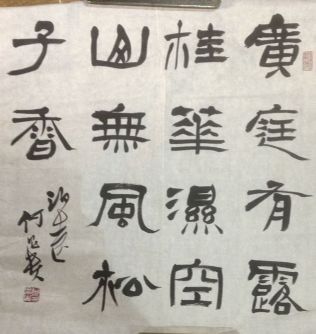 廣庭有露
桂華濕空
山無風松
子香